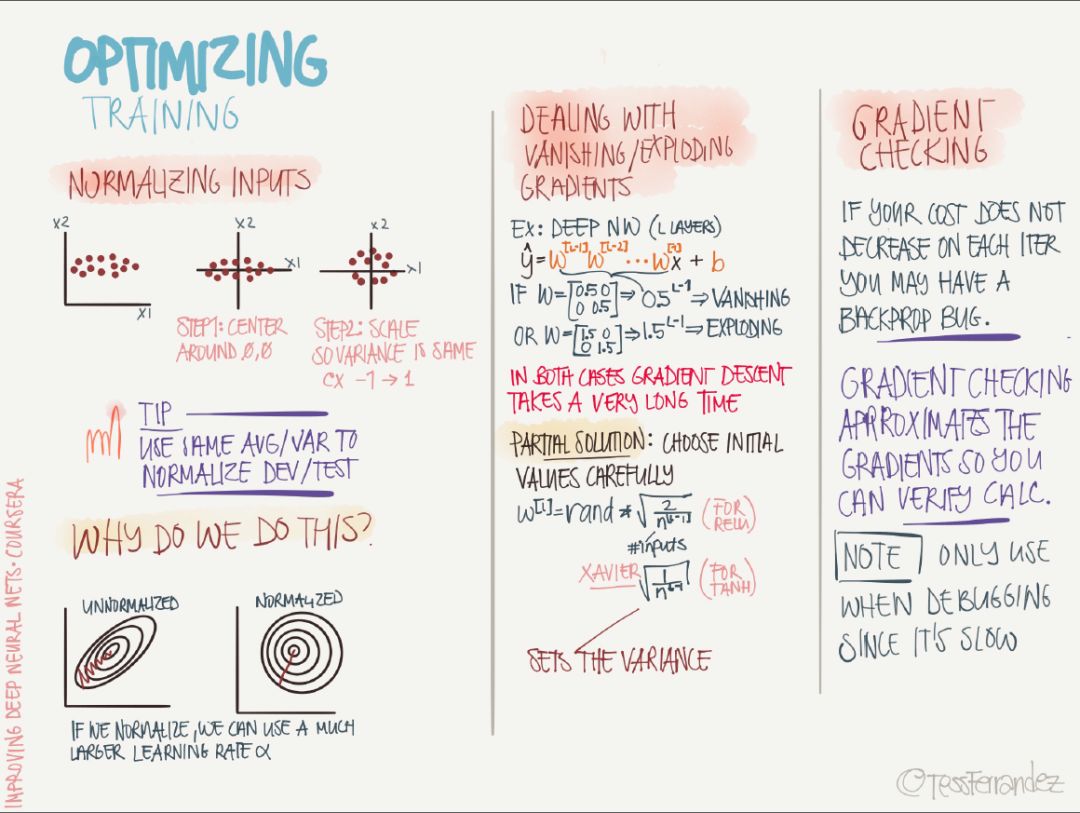 OPTIMIZING
TRAINING
NORMALIZING INPUTS
X2
X1
X2
X1
X2
X1
STEP1: CENTER
AROUND 0,0
STEP2: SCALE
SO VARIANCE IS SAME
CX -1 → 1
TIP
USE SAME AVG/VAR TO
NORMALIZE DEV/TEST
WHY DO WE DO THIS?
UNNORMALIZED
NORMALIZED
IF WE NORMALIZE, WE CAN USE A MUCH
LARGER LEARNING RATE α
DEALING WITH
VANISHING/EXPLODING
GRADIENTS
EX: DEEP NW (L LAYERS)
ŷ = W^[L-1] W^[L-2] ... W^[1] X + b
IF W = [0.5 0 / 0 0.5] ⇒ 0.5^L-1 ⇒ VANISHING
OR W = [1.5 0 / 0 1.5] ⇒ 1.5^L-1 ⇒ EXPLODING
IN BOTH CASES GRADIENT DESCENT
TAKES A VERY LONG TIME
PARTIAL SOLUTION: CHOOSE INITIAL
VALUES CAREFULLY
W^[l] = rand * √(2/n^[l-1]) (FOR RELU)
#inputs
XAVIER √(1/n^[l-1]) (FOR TANH)
SETS THE VARIANCE
GRADIENT
CHECKING
IF YOUR COST DOES NOT
DECREASE ON EACH ITER
YOU MAY HAVE A
BACKPROP BUG.
GRADIENT CHECKING
APPROXIMATES THE
GRADIENTS SO YOU
CAN VERIFY CALC.
NOTE ONLY USE
WHEN DEBUGGING
SINCE IT'S SLOW
IMPROVING DEEP NEURAL NETS · COURSERA
©TessFerrandez